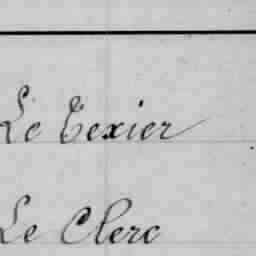 Le Texier
Le Clerc